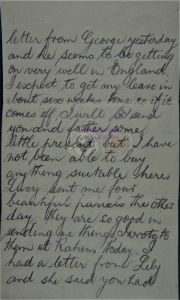 letter from George yesterday
and he seems to be getting
on very well in England
I expect to get my leave in
about six weeks time or if it
comes off I will send
you and father some
little present but I have
not been able to buy
anything suitable here
sent me four
beautiful the other
day they are so good in
sending me things I wrote to
them at today. I
had a letter from Lily
and she said you had